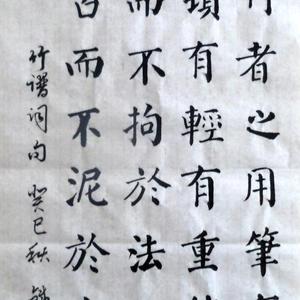 者之用筆
有輕有重
而不拘於法
而不泥於
竹譜词句 癸巳秋